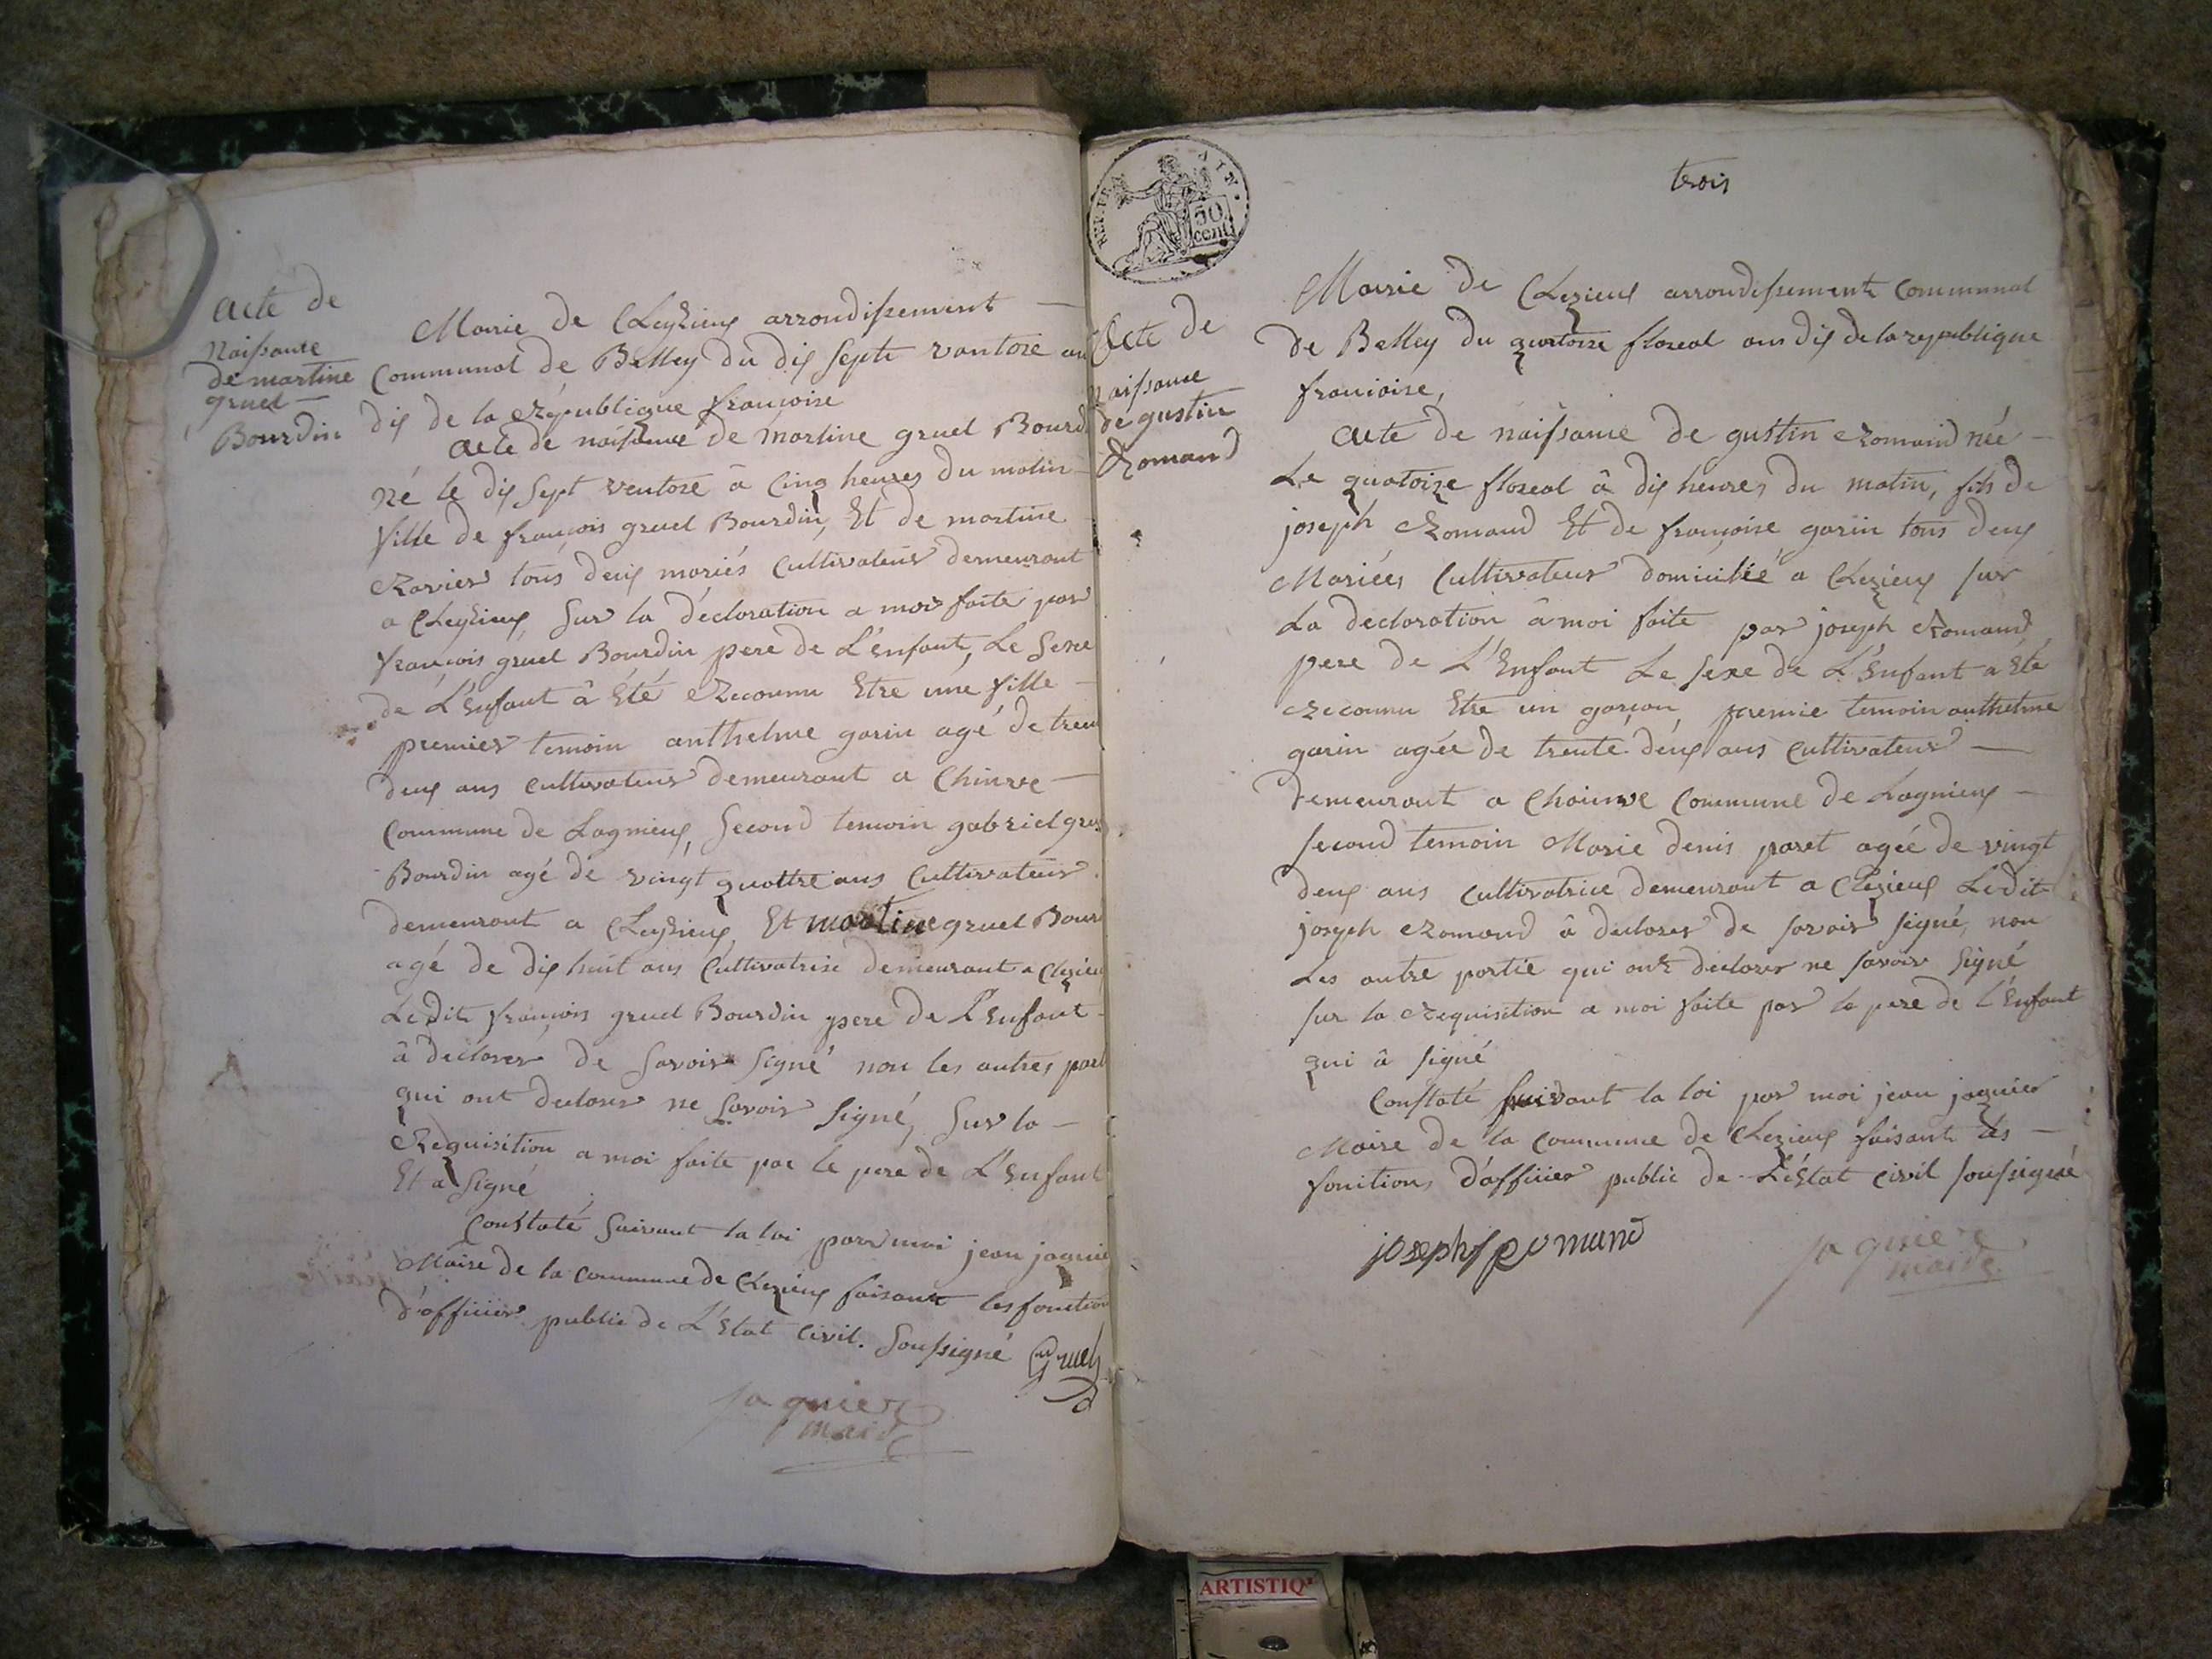 acte de
Naissance
de martine
gruel
Bourdin
Mairie de Cleyzieux arrondissement
Communal de Belley du dix Septe vantose an
dix de la république francoise
acte de naissance de martine gruel Bourd
né le dix sept ventose à cinq heures du matin
fille de francois gruel Bourdin, Et de martine
Ravier tous deux mariés Cultivateur demeurant
a Cleyzieux, Sur la déclaration a moi faite par
francois gruel Bourdin pere de L'enfant, Le Sexe
de L'Enfant à Eté Reconnu Etre une fille
premier temoin anthelme garin agé de tren
deux ans cultivateur demeurant a Chinve
commune de Lagnieux, Second temoin gabriel gru
Bourdin agé de vingt quattre ans Cultivateur
demeurant a Cleyzieux, Et martine gruel Bour
agé de dix huit ans Cultivatrise demeurant a Clezieu
Ledit francois gruel Bourdin pere de L'Enfant
à declarer de Savoir Signé non les autres part
qui ont declarer ne Savoir Signé, Sur la
Requisition a moi faite par le pere de L'Enfant
Et a Signé
Constaté Suivant la loi par moi jean jaquie
Maire de la Commune de Clezieux faisant les fonction
d'officier public de L'Etat Civil. Soussigné Gruel
jaquier
maire
REP. FRA. AIN.
50
cent
trois
Acte de
naissance
de gustin
Romand
Mairie de Clezieux arrondissement Communal
de Belley du quatorze floreal ans dix de la republique
francoise,
acte de naissance de gustin Romand née
Le quatoize floreal à dix heures du matin, fils de
joseph Romand Et de francoise garin tous deux
Mariées Cultivateur domiciliée a Clezieux sur
La declaration à moi faite par joseph Romand
pere de L'Enfant Le sexe de L'Enfant a Eté
Reconnu Etre un garcon, premie temoin anthelme
garin agée de trente deux ans Cultivateur
demeurant a Choinve Commune de Lagnieux
second temoin Marie denis paret agée de vingt
deux ans cultivatrice demeurant a Clezieux Ledit
joseph Romand à declarer de savoir signé, non
Les autre partie qui ont declarer ne savoir Signé
sur la Requisition a moi faite par le pere de l'Enfant
qui à signé
Constaté suivant la loi par moi jean jaquier
Maire de la Commune de Clezieux faisant les
fonctions d'officier public de L'Etat Civil soussigné
joseph romand
jaquier
maire
ARTISTIQ